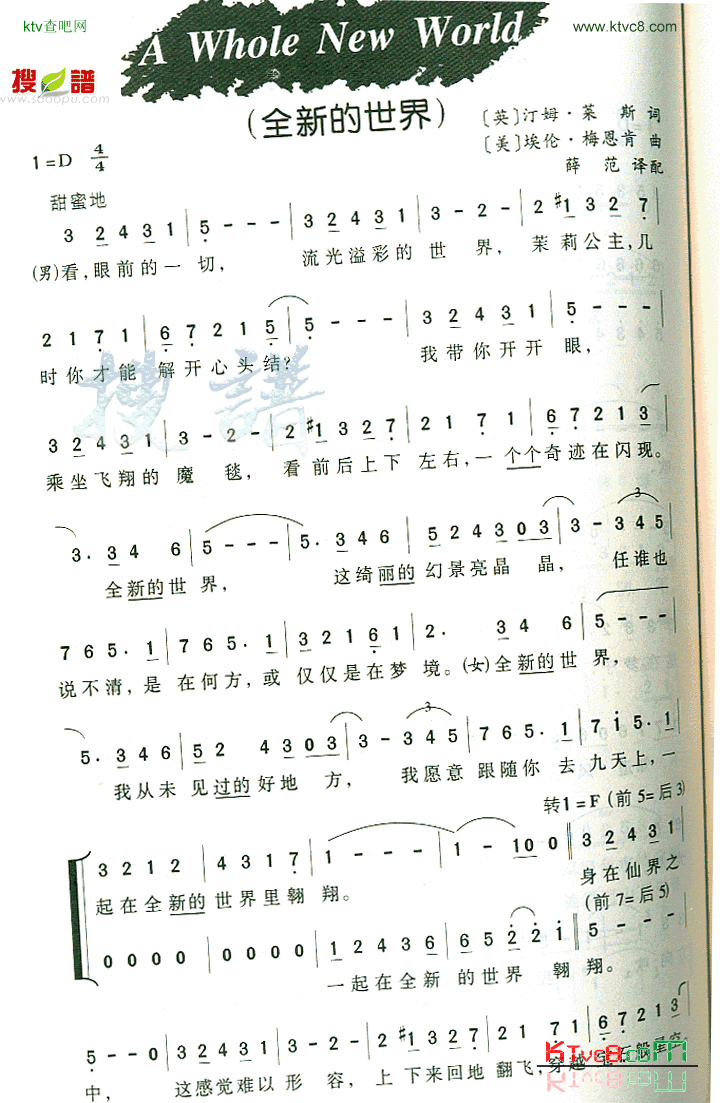 ktv查吧网
www.ktvc8.com
A Whole New World
搜谱
www.sooopu.com
(全新的世界)
〔英〕汀姆·莱 斯 词
〔美〕埃伦·梅恩肯 曲
薛 范 译配
1=D 4/4
甜蜜地
3 2 4 3 1 | 5 - - - | 3 2 4 3 1 | 3 - 2 - | 2 #1 3 2 7 |
(男)看,眼前的一 切, 流光溢彩的 世 界, 茉莉公主,几
2 1 7 1 | 6 7 2 1 5 | 5 - - - | 3 2 4 3 1 | 5 - - - |
时你才能 解开心头结? 我带你开开 眼,
3 2 4 3 1 | 3 - 2 - | 2 #1 3 2 7 | 2 1 7 1 | 6 7 2 1 3 |
乘坐飞翔的 魔 毯, 看前后上下 左右,一 个个奇迹在闪现。
3· 3 4 6 | 5 - - - | 5· 3 4 6 | 5 2 4 3 0 3 | 3 - 3 4 5 |
全新的世 界, 这绮丽的 幻景亮晶 晶, 任谁也
7 6 5· 1 | 7 6 5· 1 | 3 2 1 6 1 | 2· 3 4 6 | 5 - - - |
说不清,是 在何方,或 仅仅是在梦 境。(女)全新的世 界,
5· 3 4 6 | 5 2 4 3 0 3 | 3 - 3 4 5 | 7 6 5· 1 | 7 1 5· 1 |
我从未 见过的好地 方, 我愿意 跟随你 去 九天上,一
转1=F (前5=后3)
3 2 1 2 | 4 3 1 7 | 1 - - - | 1 - 1 0 0 ‖ 3 2 4 3 1 |
起在全新的 世界里翱 翔。 身在仙界之
(前7=后5)
0 0 0 0 | 0 0 0 0 | 1 2 4 3 6 | 6 5 2 2 1 ‖ 5 - - - |
一起在全新 的世界 翱 翔。
5 - - 0 | 3 2 4 3 1 | 3 - 2 - | 2 #1 3 2 7 | 2 1 7 1 | 6 7 2 1 3 |
中, 这感觉难以 形 容, 上 下来回地 翻飞,穿越
KTvc8.com
搜谱